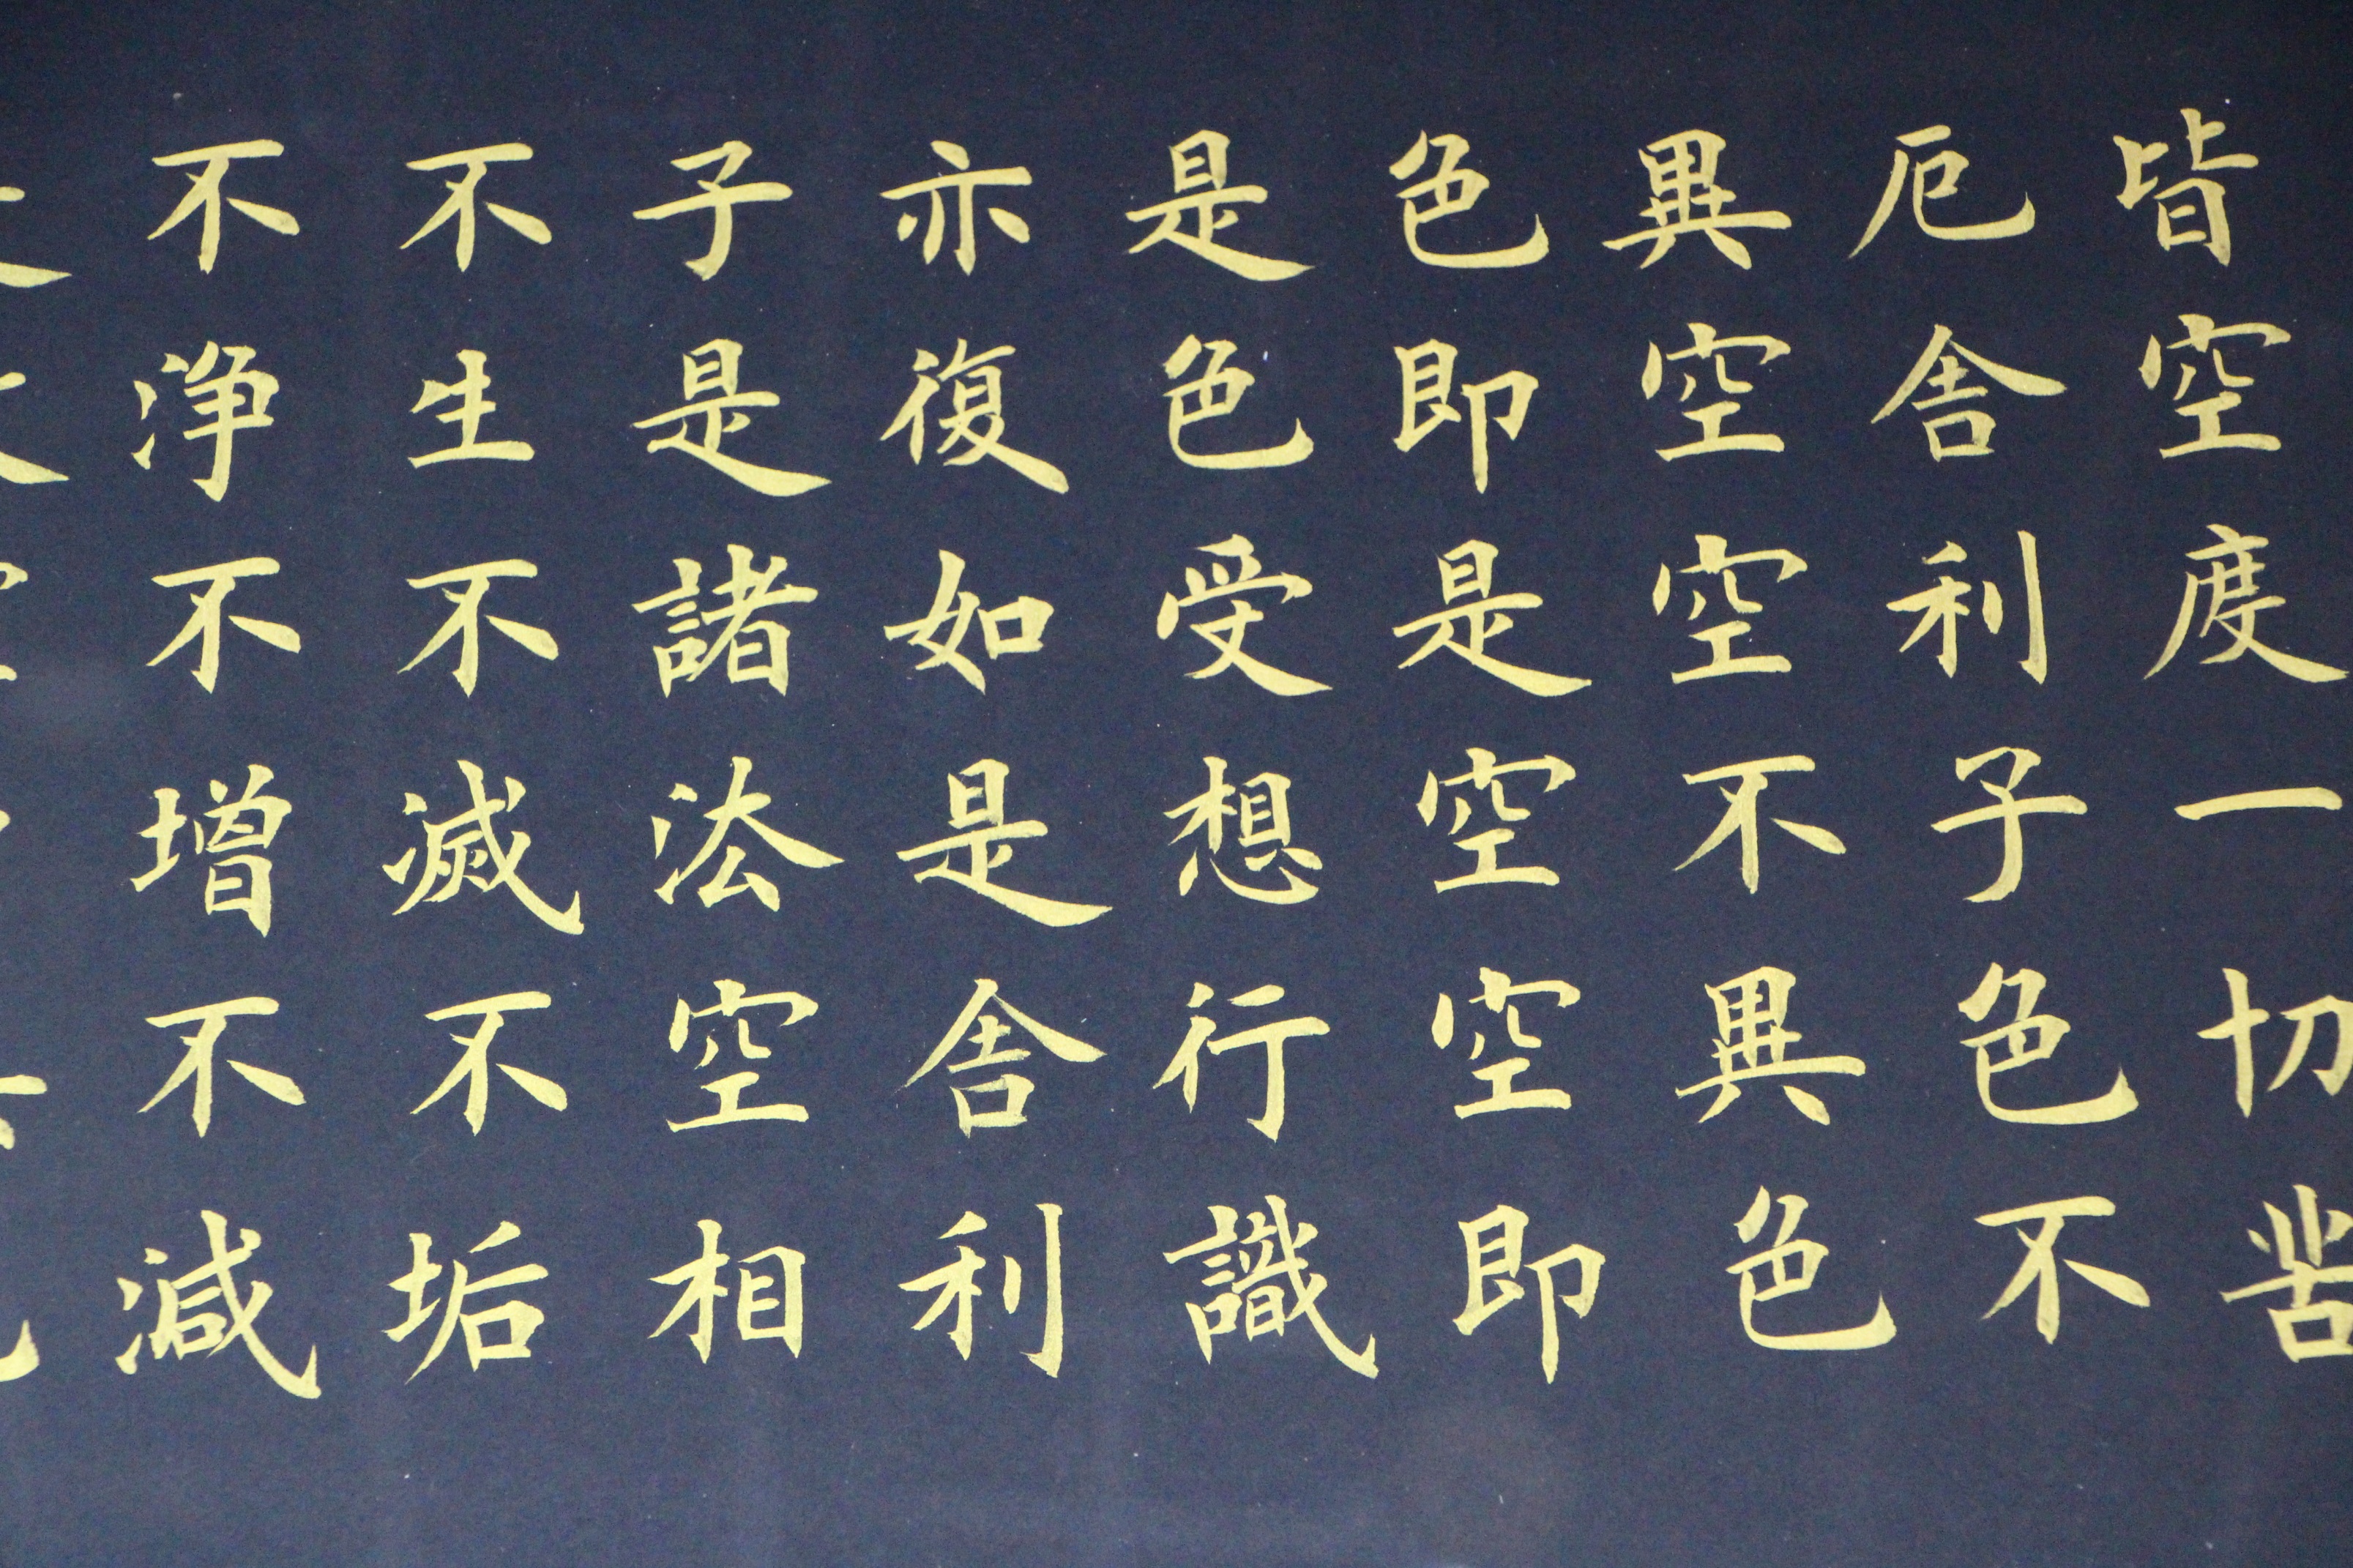 皆空度一切苦
厄舎利子色不
異空空不異色
色即是空空即
是色受想行識
亦復如是舎利
子是諸法空相
不生不滅不垢
不浄不増不減